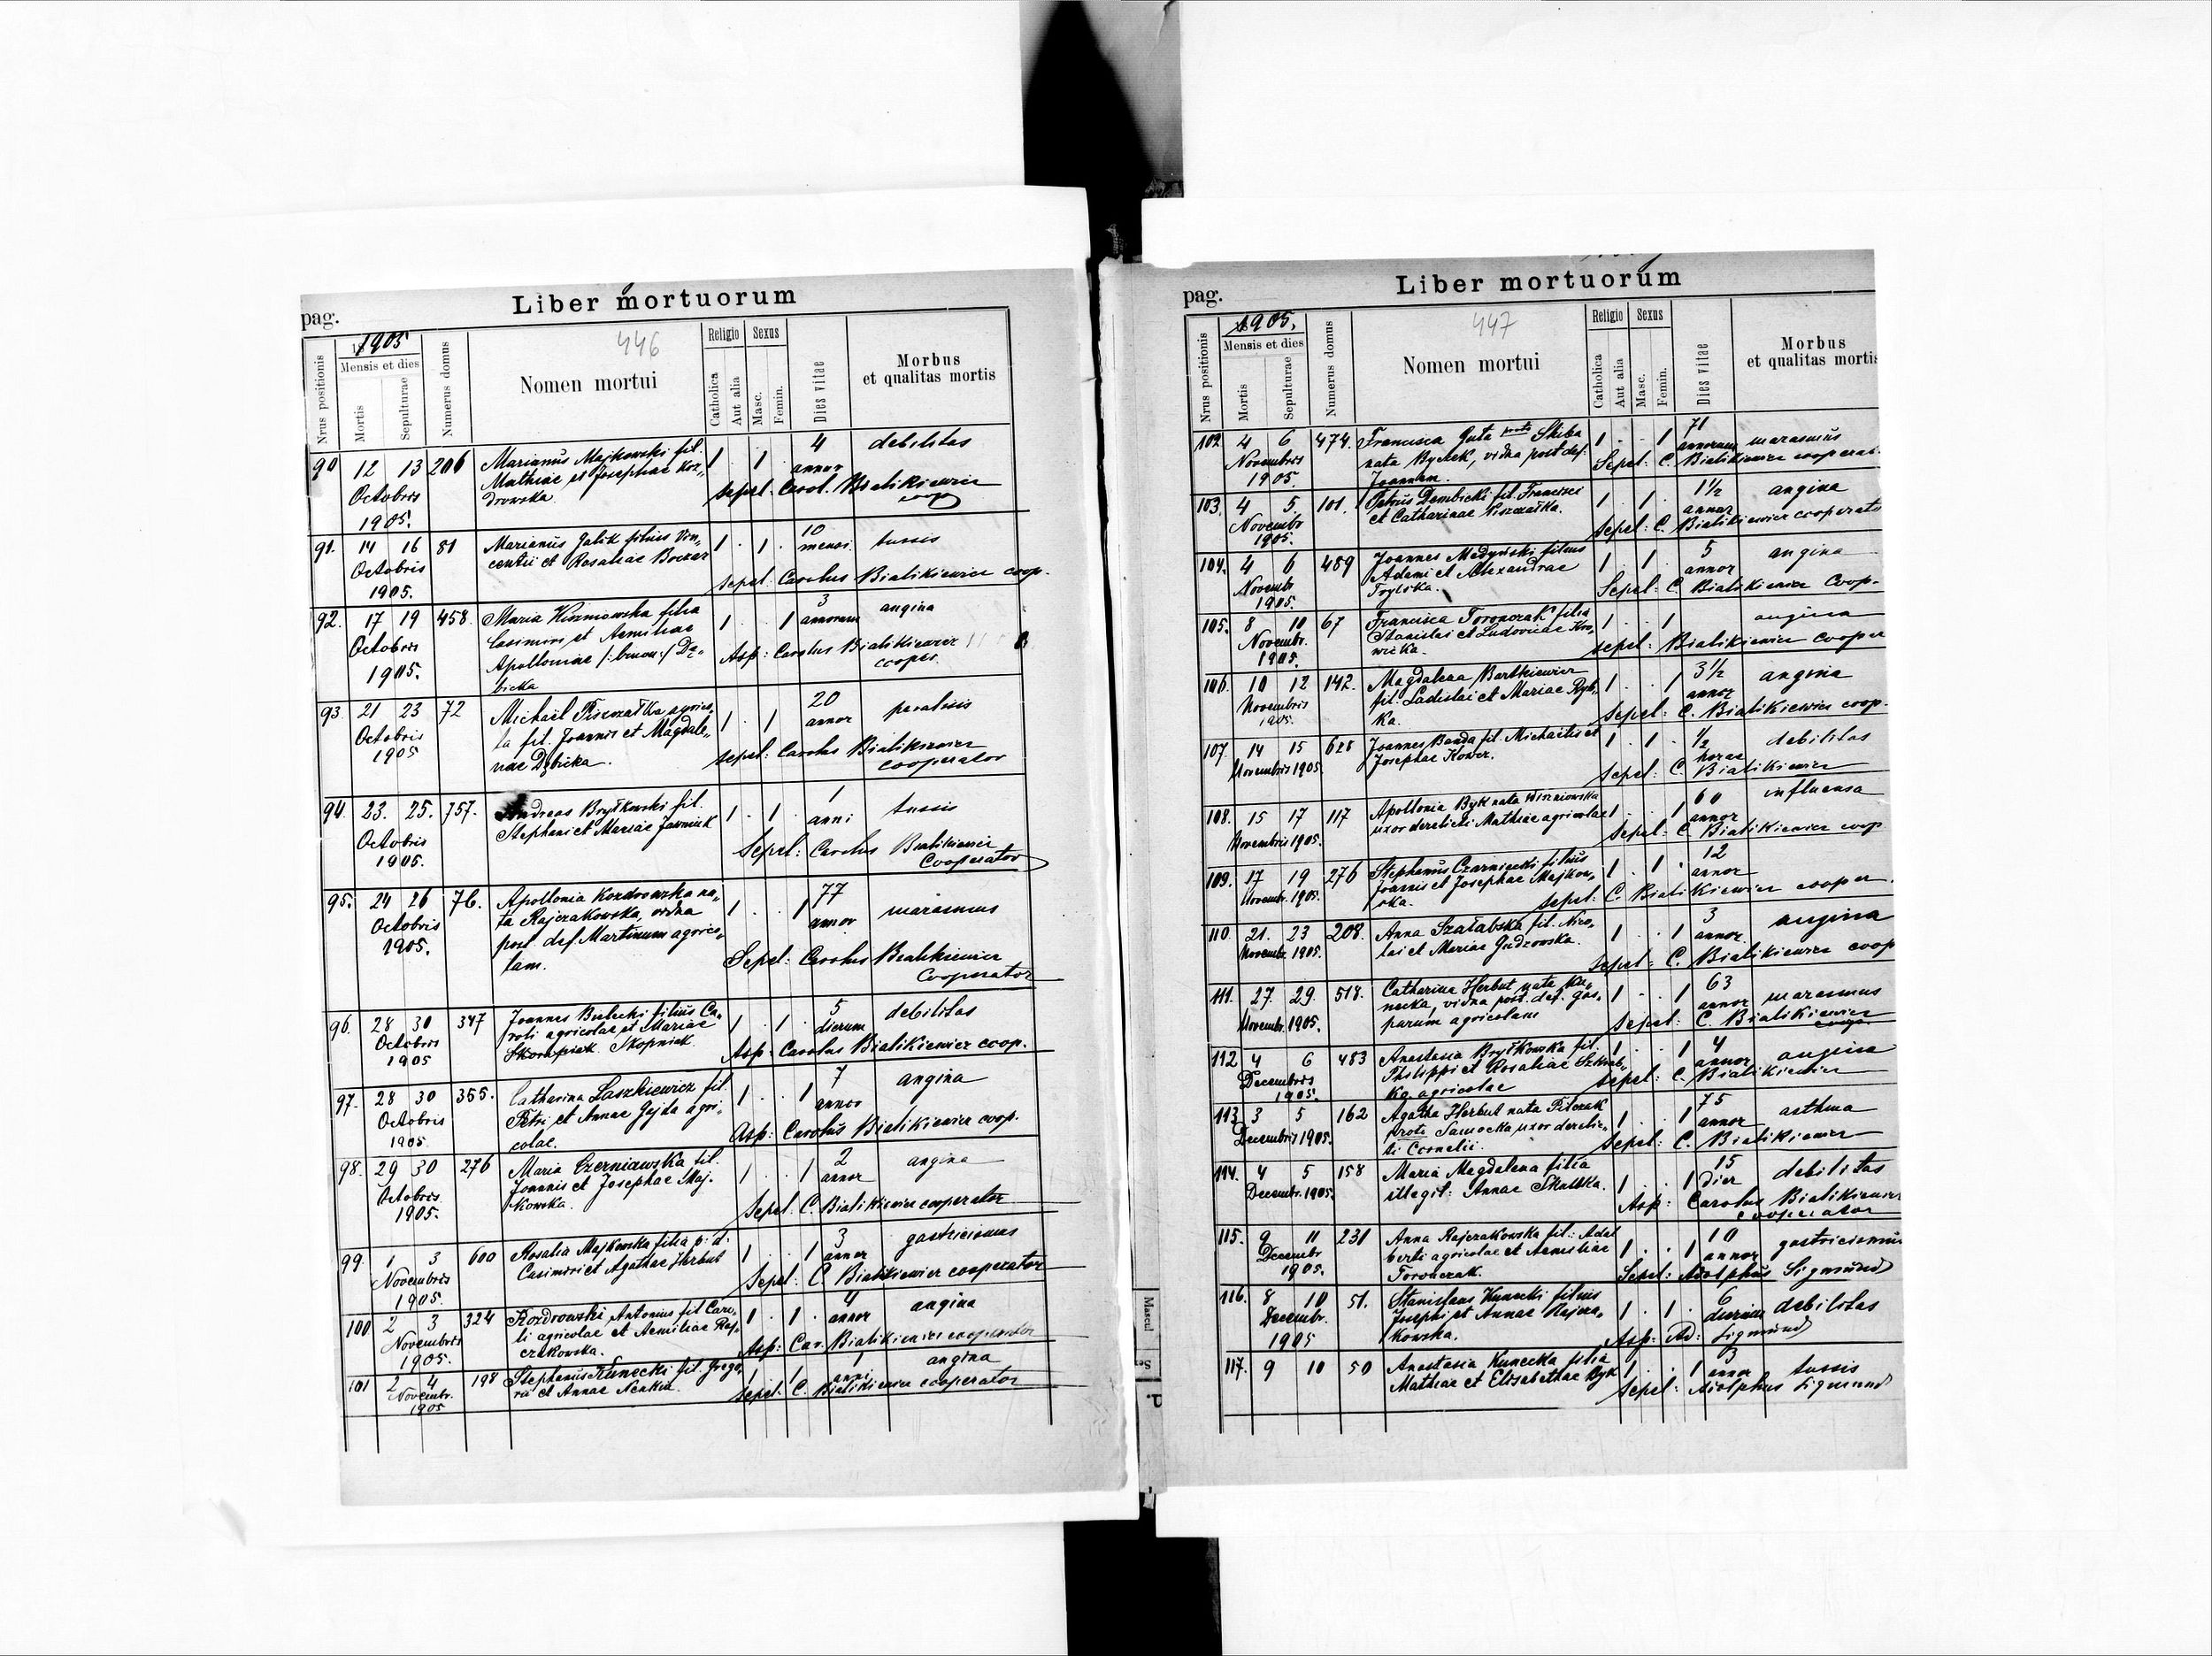 pag.
Liber mortuorum
446
Nrus positionis
1905
Mensis et dies
Mortis
Sepulturae
Numerus domus
Nomen mortui
Religio
Catholica
Aut alia
Sexus
Masc.
Femin.
Dies vitae
Morbus
et qualitas mortis
90 12 13 206 Marianus Majkowski fil. 1 . 1 4 debilitas
Octobris Mathiae et Josephae Koz„ annor
1905. drowska. sepel. Carol. Bialikiewicz
coop
91. 14 16 81 Marianus Galik filius Vin„ 1 . 1 . 10 tussis
Octobris centii et Rosaliae Boczar mensi.
1905. sepel: Carolus Bialikiewicz coop.
92. 17 19 458. Maria filia 1 . . 1 3 angina
Octobris Casimiri et Aemiliae annorum
1905. Apolloniae Dę„ Asp: Carolus Bialikiewicz
bicka cooper.
93. 21 23 72 Michaël agrico„ 1 . 1 20 paralisis
Octobris la fil. Joannis et Magdale„ annor
1905 nae Dębicka. sepel: Carolus Bialikiewicz
cooperator
94. 23. 25. 757. Andreas Bryłkowski fil. 1 . 1 . 1 tussis
Octobris Stephani et Mariae anni
1905. Sepel: Carolus Bialikiewicz
Cooperator
95. 24 26 76. Apollonia Kozdrowska na„ 1 . . 1 77 marasmus
Octobris ta Rajczakowska, vidua annor
1905. post def. Martinum agrico„
lam. Sepel: Carolus Bialikiewicz
Cooperator
96. 28 30 347 Joannes filius Ca„ 1 . 1 . 5 debilitas
Octobris roli agricolae et Mariae dierum
1905 Skopniak. Asp: Carolus Bialikiewicz coop.
97. 28 30 355. Catharina Laszkiewicz fil. 1 . . 1 7 angina
Octobris Petri et Annae Gajda agri„ annor
1905. colae. Asp: Carolus Bialikiewicz coop.
98. 29 30 276 Maria Czerniawska fil. 1 . . 1 2 angina
Octobris Joannis et Josephae Maj„ annor
1905. kowska. Sepel: C. Bialikiewicz cooperator
99. 1 3 600 Rosalia Majkowska filia p. d. 1 . . 1 3 gastricismus
Novembris Casimiri et Agathae Herbut annor
1905. Sepel: C. Bialikiewicz cooperator
100 2 3 324 Kozdrowski Antonius fil Caro„ 1 . 1 . 4 angina
Novembris li agricolae et Aemiliae Raj„ annor
1905. czakowska. Asp: Car. Bialikiewicz cooperator
101 2 4 198 Stephanus Kunecki fil. Grego„ 1 . 1 . 1 angina
Novembr. rii et Annae anni
1905 sepel. C. Bialikiewicz cooperator
pag.
Liber mortuorum
447
Nrus positionis
1905.
Mensis et dies
Mortis
Sepulturae
Numerus domus
Nomen mortui
Religio
Catholica
Aut alia
Sexus
Masc.
Femin.
Dies vitae
Morbus
et qualitas mortis
102 4 6 474. Francisca Guta Skiba 1 . . 1 71 marasmus
Novembris nata Bychek, vidua post def. annorum
1905. Joannem. Sepel: C. Bialikiewicz cooperat.
103. 4 5 101. Petrus Dembicki fil. Francisci 1 . 1 . 1½ angina
Novembr et Catharinae annor
1905. sepel: C. Bialikiewicz cooperato
104. 4 6 489 Joannes Medyński filius 1 . 1 . 5 angina
Novembr Adami et Alexandrae annor
1905. Trylska. Sepel: C. Bialikiewicz Coop.
105. 8 10 67 Francisca Toronczak filia 1 . . 1 angina
Novembr. Stanislai et Ludovicae
1905. wicka. sepel: Bialikiewicz cooper
106. 10 12 142. Magdalena Bartkiewicz 1 . . 1 3½ angina
Novembris fil. Ladislai et Mariae Ryb„ annor
1905. ka. sepel: C. Bialikiewicz coop.
107. 14 15 628 Joannes Banda fil. Michaelis et 1 . 1 . ½ debilitas
Novembris 1905. Josephae Kower. horae
sepel: C. Bialikiewicz
108. 15 17 117 Apollonia Byk nata Wiszniowska 1 . . 1 60 influensa
Novembris 1905. uxor derelicti Mathiae agricolae annor
sepel: C. Bialikiewicz coop
109. 17 19 276 Stephanus Czarniecki filius 1 . 1 . 12
Novemb. 1905. Joannis et Josephae Majkow„ annor
ska. sepel: C. Bialikiewicz cooper.
110. 21. 23 208. Anna Szałabska fil. Nico„ 1 . . 1 3 angina
Novembr. 1905. lai et Mariae Gudzowska. annor.
sepel: C. Bialikiewicz coop
111. 27. 29. 518. Catharina Herbut nata Ku„ 1 . . 1 63 marasmus
Novembr. 1905. necka, vidua post. def. Gas„ annor
parum agricolam sepel: C. Bialikiewicz
coop.
112 4 6 483 Anastasia Bryłkowska fil. 1 . . 1 4 angina
Decembris Philippi et Rosaliae annor
1905. ka agricolae sepel: C. Bialikiewicz
113. 3 5 162 Agatha Herbut nata Pilczak 1 . . 1 75 asthma
Decembris 1905. Samocka uxor derelic„ annor
ti Cornelii. sepel: C. Bialikiewicz
114. 4 5 158 Maria Magdalena filia 1 . . 1 15 debilitas
Decembr. 1905. illegit: Annae Skałka. dier
Asp: Carolus Bialikiewicz
cooperator
115. 9 11 231 Anna Rajczakowska fil.: Adal„ 1 . . 1 10 gastricismus
Decembr berti agricolae et Aemiliae annor
1905. Toronczak. Sepel: Adolphus Sigmund
116. 8 10 51. Stanislaus Kunecki filius 1 . 1 . 6 debilitas
Decembr. Josephi et Annae Rajcza„ dierum
1905 kowska. Asp: Ad: Sigmund
117. 9 10 50 Anastasia Kunecka filia 1 . . 1 3 tussis
Mathiae et Elisabethae Byk annor
sepel: Adolphus Sigmund
Mascul